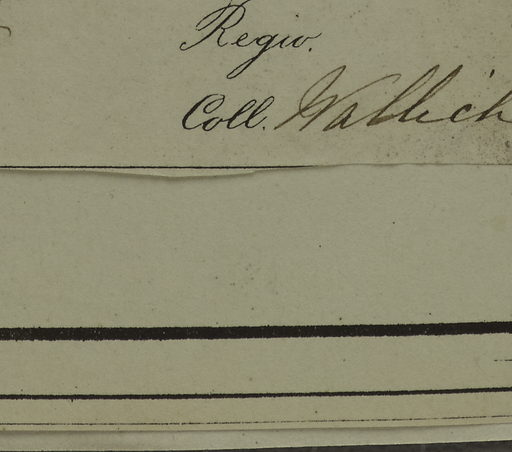 Regio.
Coll. Wallich